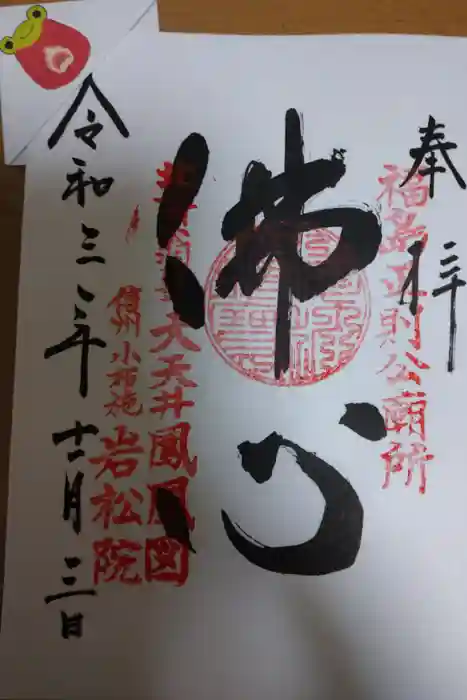 奉拝
福島正則公廟所
佛心
大天井鳳凰図
信州小布施 岩松院
令和三年十二月三日